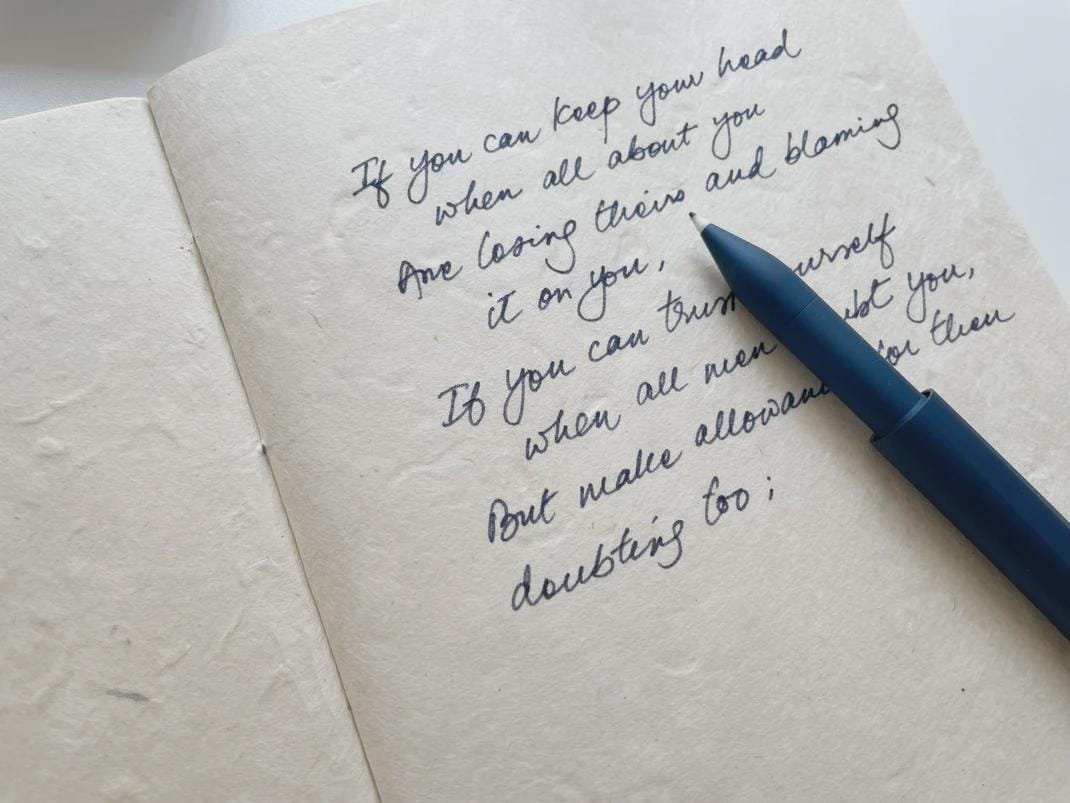 If you can keep your head
when all about you
Are losing theirs and blaming
it on you,
If you can trust yourself
when all men you,
But make allowance for then
doubting too;